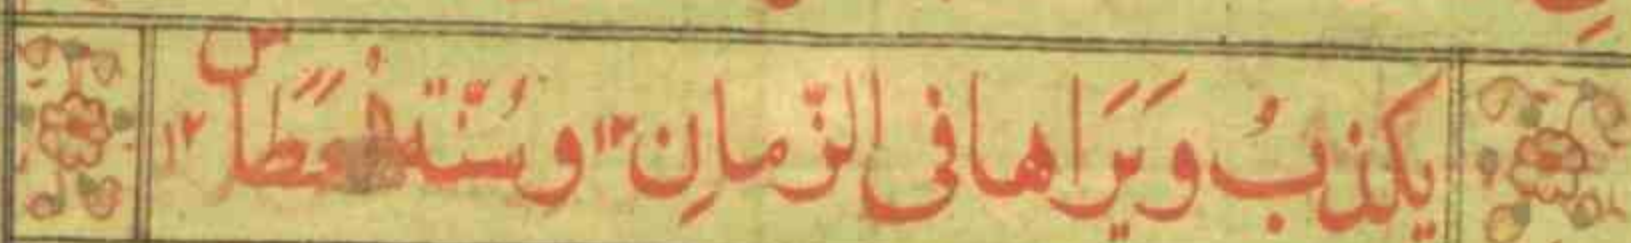 يكذبُ ويَرَاها فى الزّمانِ ١٢ وسُنّة ١٢